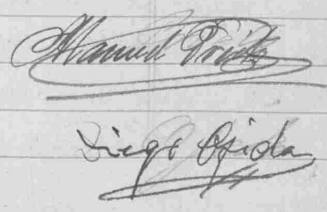 Manuel Prieto
Diego Ojeda